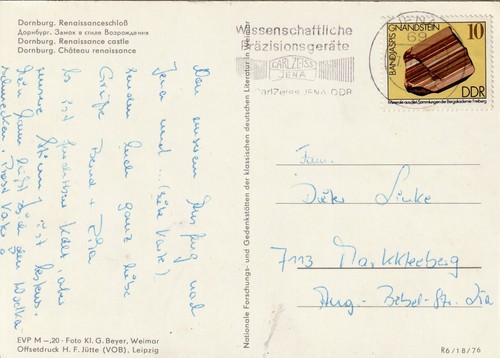 Dornburg. Renaissanceschloß
Дорнбург. Замок в стиле Возрождения
Dornburg. Renaissance castle
Dornburg. Château renaissance
Wissenschaftliche
Präzisionsgeräte
CARL ZEISS
JENA
Carl Zeiss JENA DDR
BANDJASPIS GNANDSTEIN
10
DDR
Minerale aus den Sammlungen der Bergakademie Freiberg
Von unserem Ausflug nach
Jena und ... (siehe Karte)
senden Euch ganz liebe
Grüße Bernd +
Es ist furchtbar kalt, aber
unsere Stimmung ist bestens.
Prost Vater!
Fam.
Dieter Linke
7113 Markkleeberg
Aug.-Bebel-Str.
Nationale Forschungs- und Gedenkstätten der klassischen deutschen Literatur in Weimar
EVP M –,20 · Foto Kl. G. Beyer, Weimar
Offsetdruck H. F. Jütte (VOB), Leipzig
R6/18/76